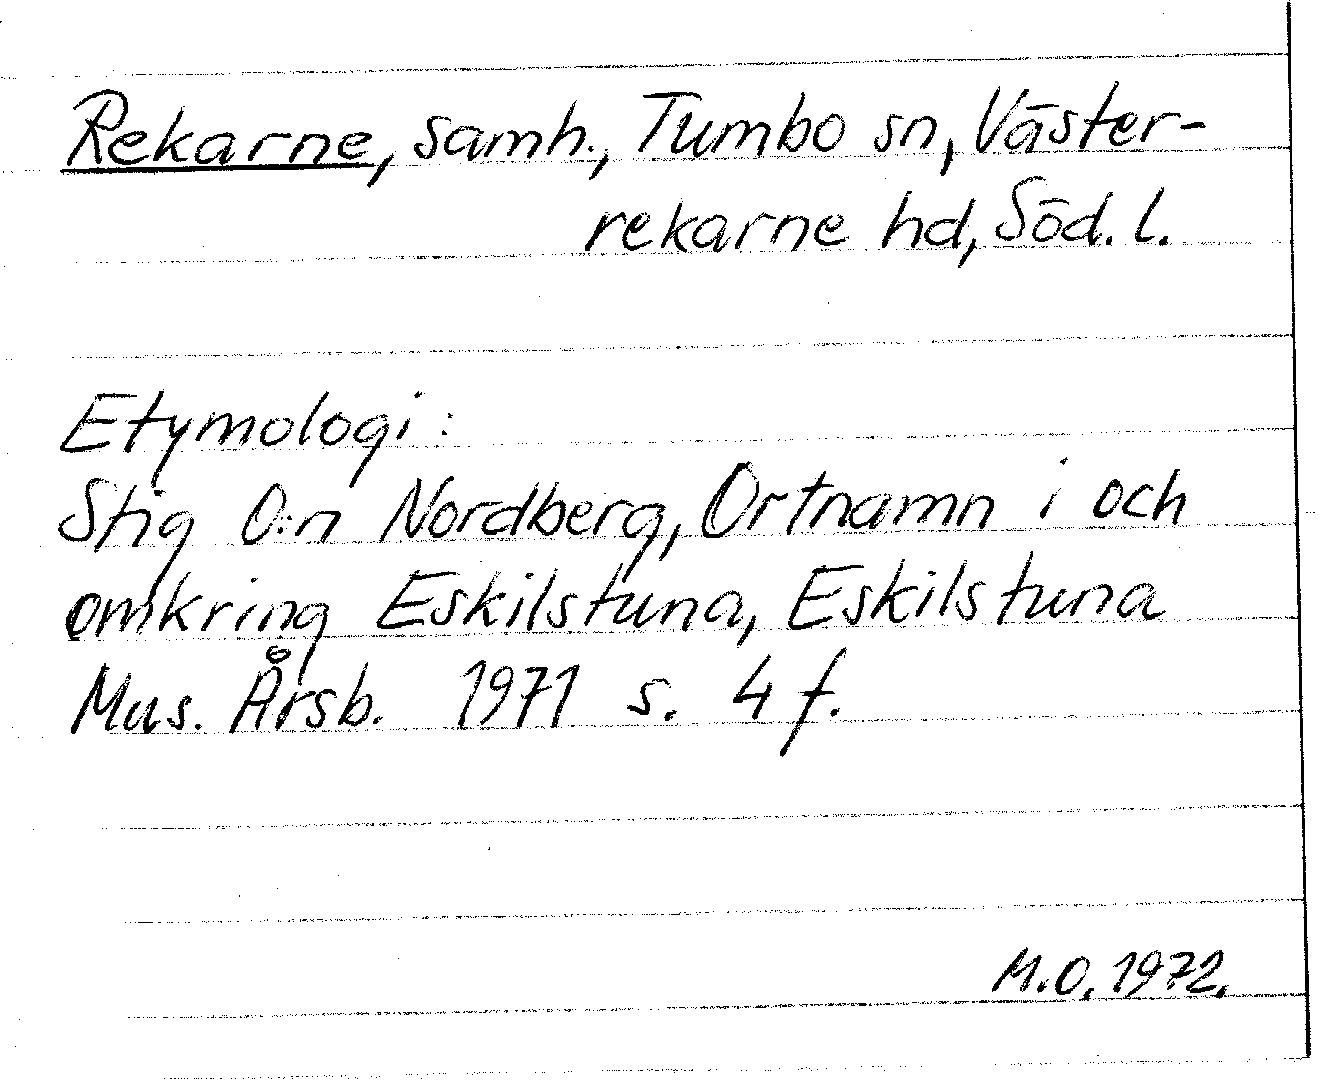 Rekarne, samh., Tumbo sn, Väster-
rekarne hd, Söd. l.
Etymologi:
Stig O:n Nordberg, Ortnamn i och
omkring Eskilstuna, Eskilstuna
Mus. Årsb. 1971 s. 4 f.
M.O. 1972.